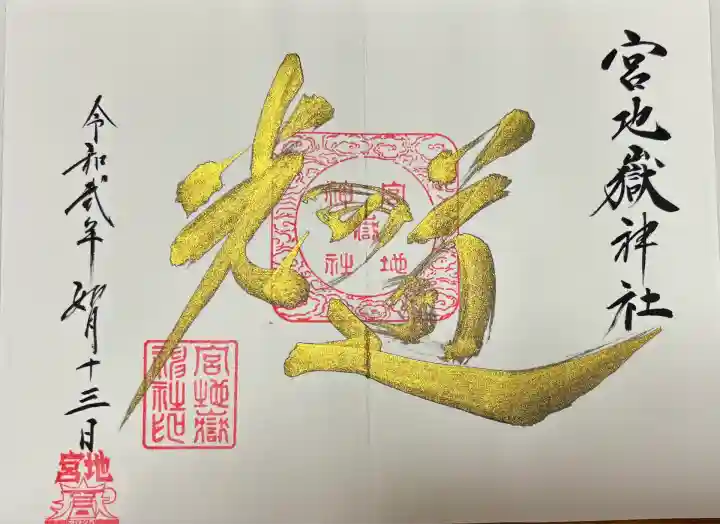 宮地嶽神社
光の道
宮地嶽神社
宮地嶽神社印
令和弐年 如月十三日
宮地嶽